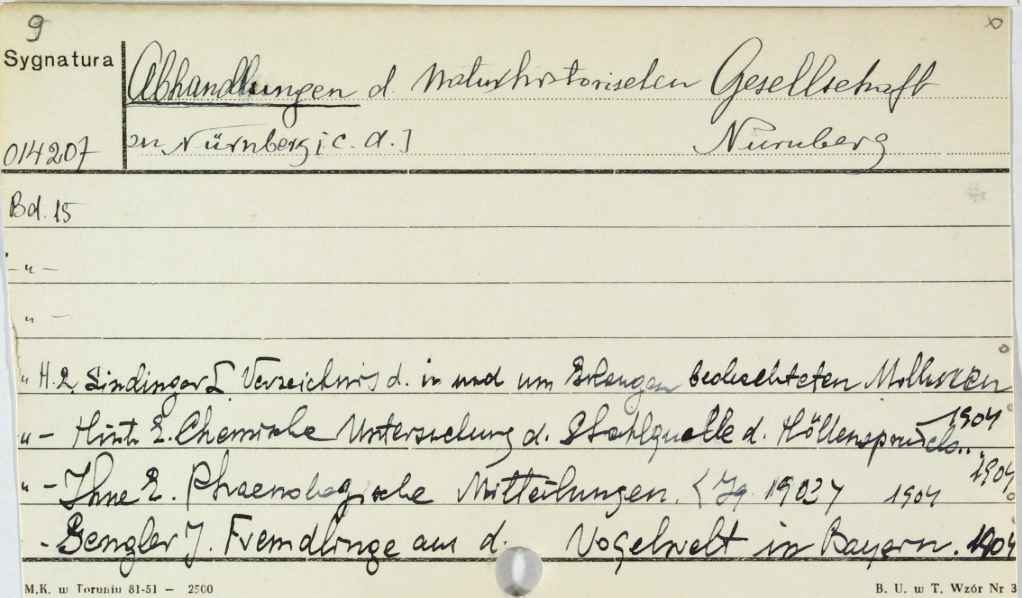 9
Sygnatura
Abhandlungen d. Naturhistorischen Gesellschaft
014207
zu Nürnberg [c. d.] Nürnberg
Bd. 15
-"-
" -
" H. 2. Lindinger L Verzeichnis d. in und um Erlangen beobachteten Mollusken
1904
" - E. Chemische Untersuchung d. Stahlquelle d.
1904
" - Ihne E. Phaenologische Mitteilungen. (Jg. 1903) 1904
- Gengler J. Fremdlinge aus d. Vogelwelt in Bayern. 1904
M.K. w Toruniu 81-51 - 2500
B. U. w T. Wzór Nr 3